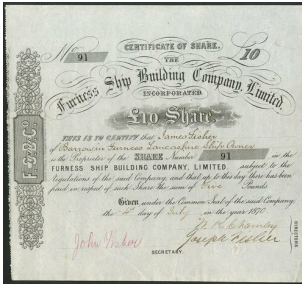 CERTIFICATE OF SHARE.
No 91 £10
THE
Furness Ship Building Company, Limited.
INCORPORATED
£10 Share
THIS IS TO CERTIFY that James Fisher
of Barrow in Furness Lancashire Ship Owner
is the Proprietor of the SHARE Number 91 in the
FURNESS SHIP BUILDING COMPANY, LIMITED, subject to the
Regulations of the said Company, and that up to this day there has been
paid in respect of such Share the sum of Five Pounds.
Given under the Common Seal of the said Company
the day of July in the year 1870
John Fisher
Joseph Fisher
SECRETARY.
DIRECTORS